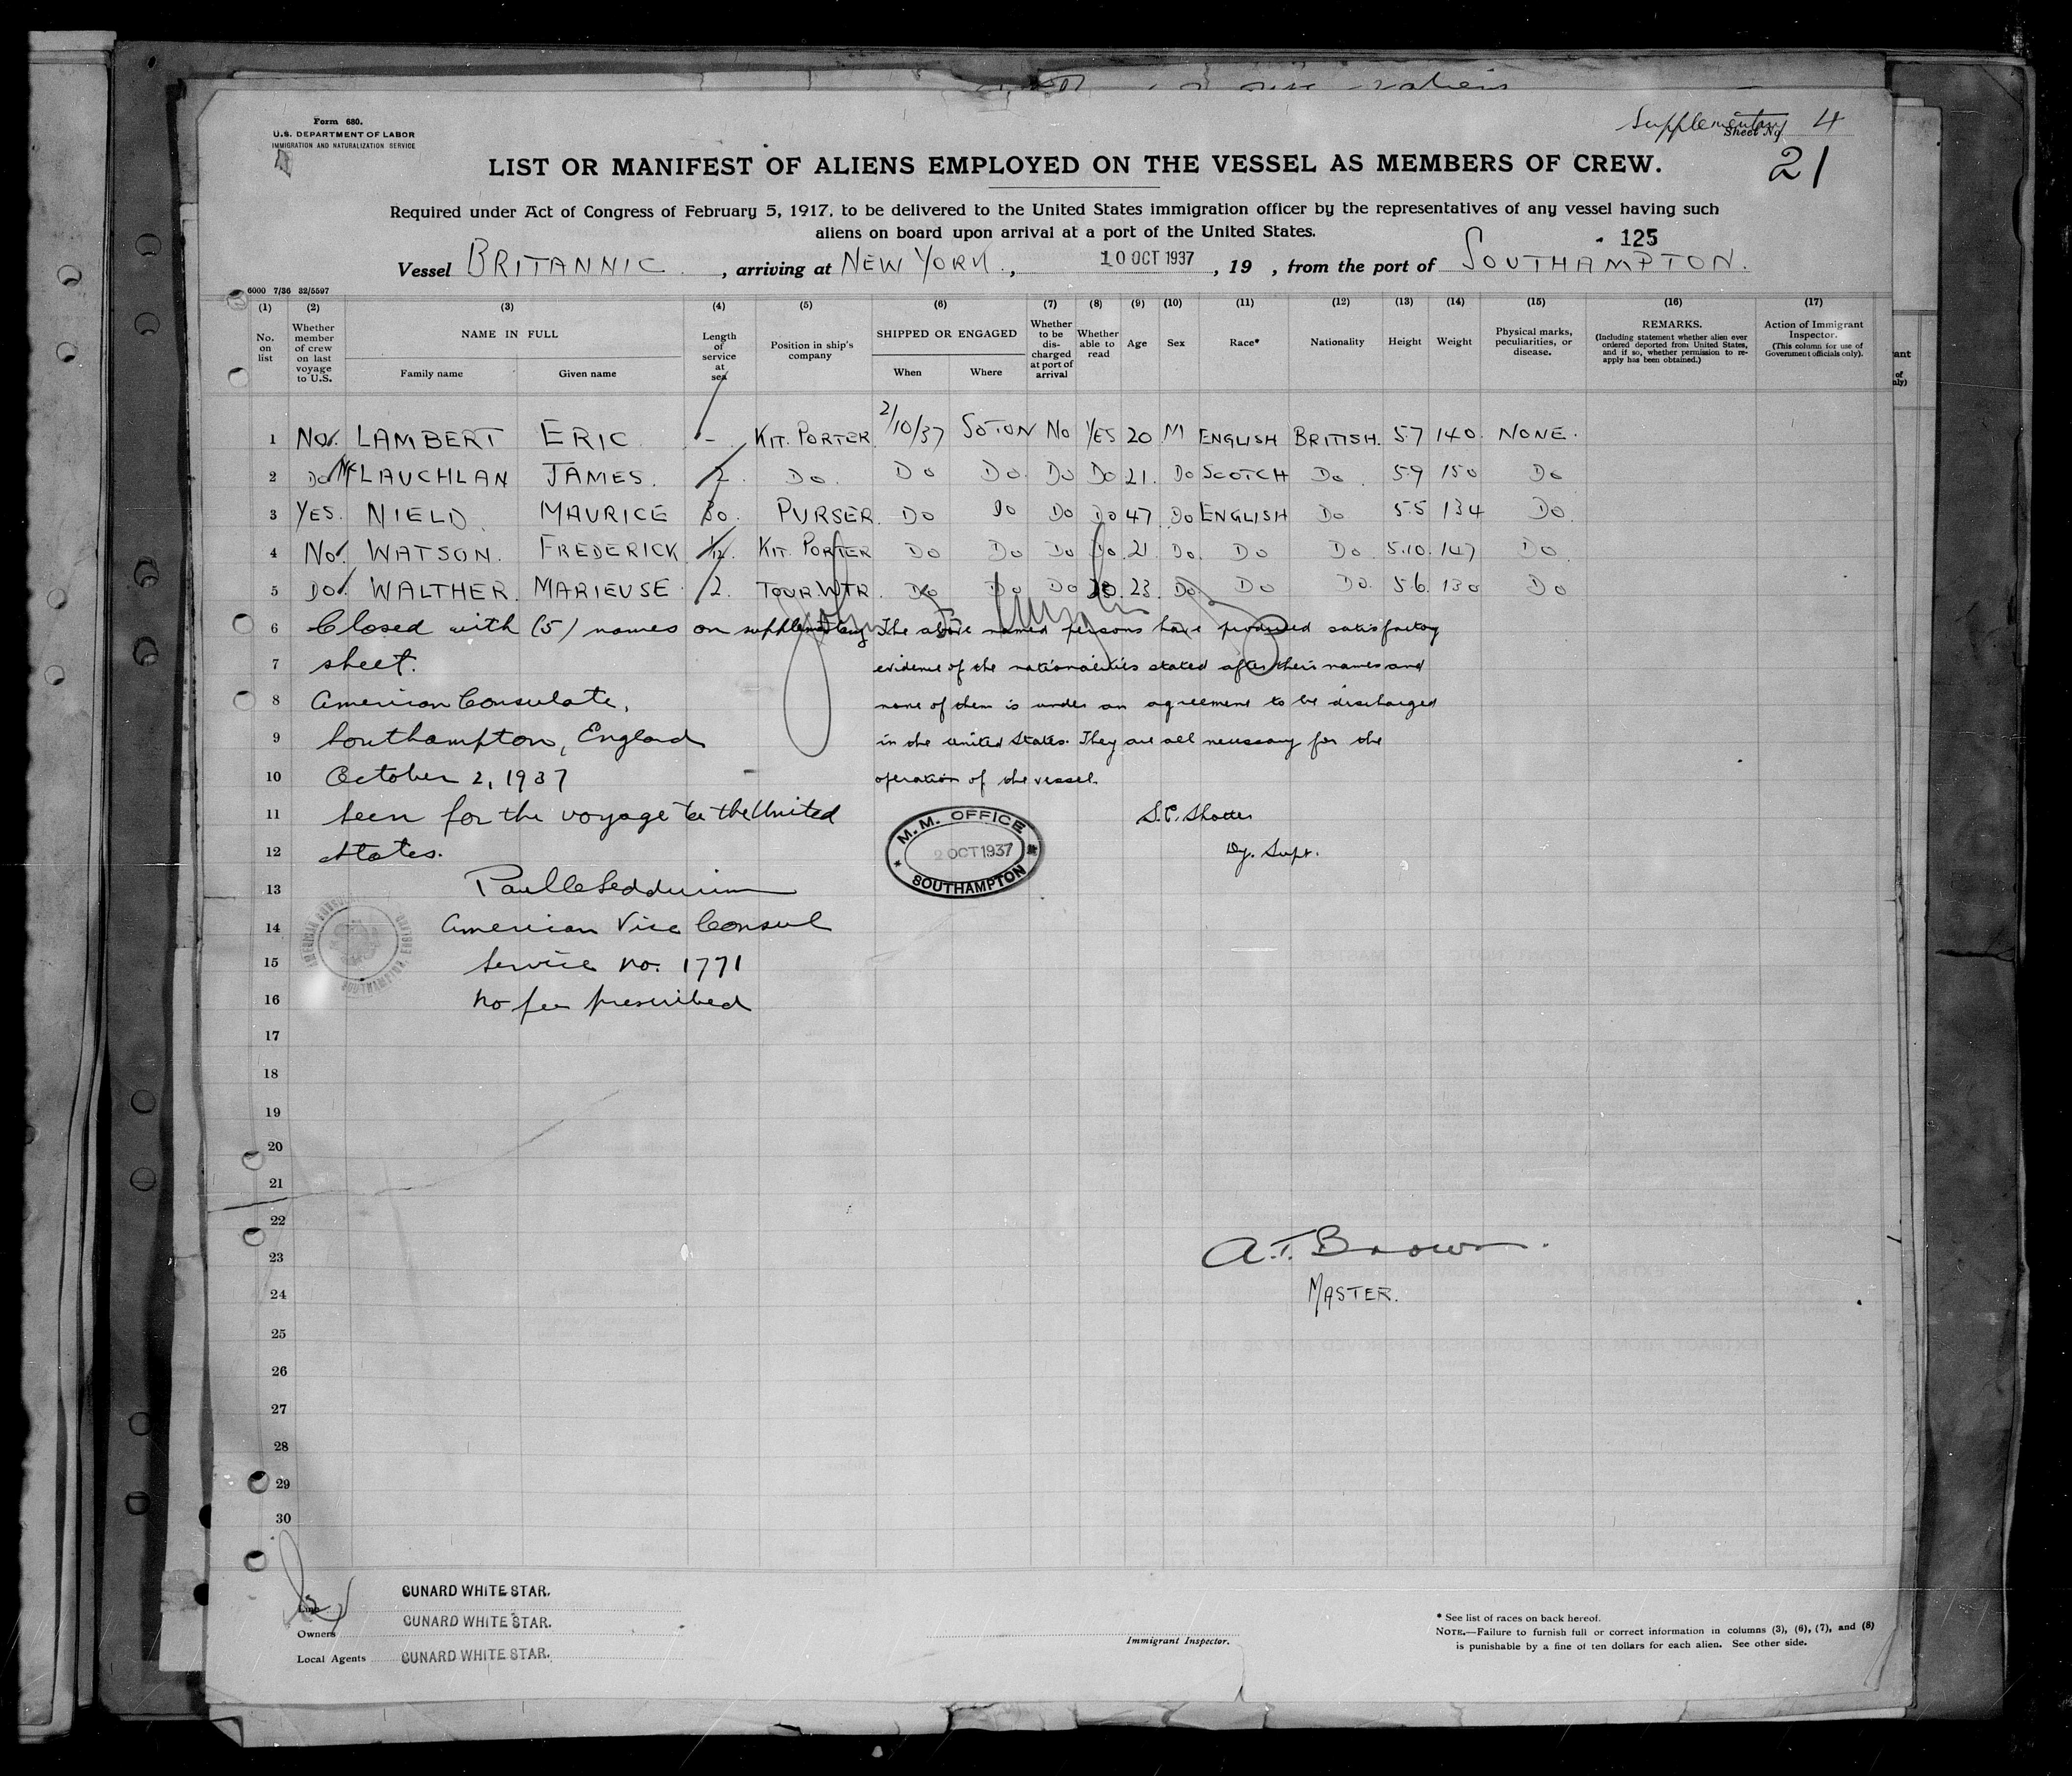 Form 680.
U.S. DEPARTMENT OF LABOR
IMMIGRATION AND NATURALIZATION SERVICE
Supplementary
Sheet No. 4
21
LIST OR MANIFEST OF ALIENS EMPLOYED ON THE VESSEL AS MEMBERS OF CREW.
Required under Act of Congress of February 5, 1917, to be delivered to the United States immigration officer by the representatives of any vessel having such
aliens on board upon arrival at a port of the United States.
125
Vessel BRITANNIC, arriving at NEW YORK, 10 OCT 1937, 19 , from the port of SOUTHAMPTON.
6000 7/36 32/5597
(1) (2) (3) (4) (5) (6) (7) (8) (9) (10) (11) (12) (13) (14) (15) (16) (17)
No. on list
Whether member of crew on last voyage to U.S.
NAME IN FULL
Family name Given name
Length of service at sea
Position in ship's company
SHIPPED OR ENGAGED
When Where
Whether to be discharged at port of arrival
Whether able to read
Age
Sex
Race*
Nationality
Height
Weight
Physical marks, peculiarities, or disease.
REMARKS.
(Including statement whether alien ever ordered deported from United States, and if so, whether permission to reapply has been obtained.)
Action of Immigrant Inspector.
(This column for use of Government officials only).
1 No. LAMBERT ERIC - KIT. PORTER 2/10/37 SOTON NO YES 20 M ENGLISH BRITISH. 5.7 140. NONE.
2 Do McLAUCHLAN JAMES. 2. Do. Do Do. Do Do 21. Do SCOTCH Do. 5.9 150 Do
3 YES. NIELD. MAURICE 30. PURSER. Do Do Do Do 47. Do ENGLISH Do 5.5 134 Do.
4 No. WATSON. FREDERICK 1/12. KIT. PORTER Do Do Do Do. 21. Do. Do Do. 5.10. 147 Do
5 Do. WALTHER. MARIEUSE 2. TOUR. WTR. Do Do Do Do. 23. Do Do Do. 5.6. 130 Do
6 Closed with (5) names on supplementary The above named persons have produced satisfactory
7 sheet. evidence of the nationalities stated after their names and
8 American Consulate, none of them is under an agreement to be discharged
9 Southampton, England in the United States. They are all necessary for the
10 October 2, 1937 operation of the vessel.
11 Seen for the voyage to the United S.C. Shotter
12 States. Dy. Supt.
M.M. OFFICE
2 OCT 1937
SOUTHAMPTON
13
14 American Vice Consul
15 Service no. 1771
16 no fee prescribed
17
18
19
20
21
22
23 A.T. Brown.
24 MASTER.
25
26
27
28
29
30
Line CUNARD WHITE STAR.
Owners CUNARD WHITE STAR.
Local Agents CUNARD WHITE STAR.
Immigrant Inspector.
* See list of races on back hereof.
NOTE.—Failure to furnish full or correct information in columns (3), (6), (7), and (8)
is punishable by a fine of ten dollars for each alien. See other side.